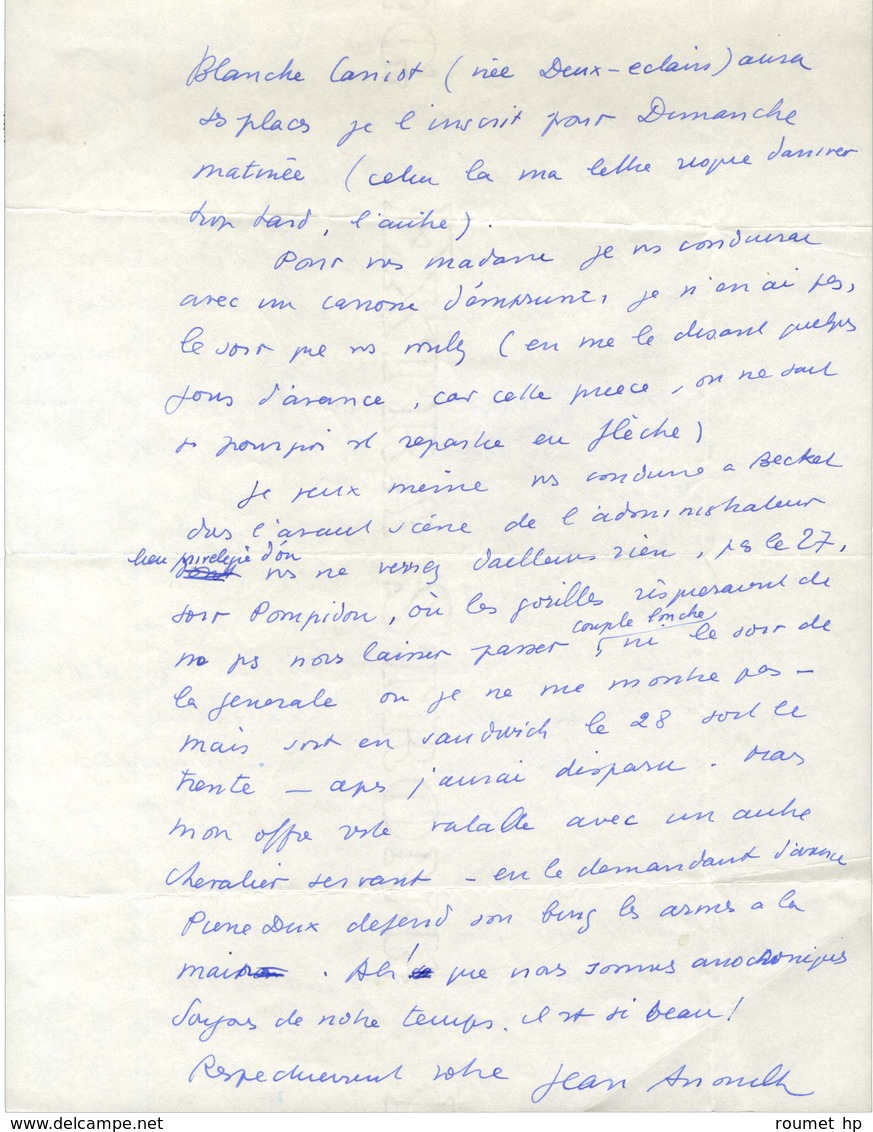 Blanche Carriot (née Deux-eclairs) aura
ses places je l'inscrit pour Dimanche
matinée (celui là ma lettre risque d'arriver
trop tard, l'autre).
Pour vs madame je vs conduirai
avec un carrosse d'emprunt, je n'en ai pas,
le soir que vs voulez (en me le disant quelques
jours d'avance, car cette piece, on ne sait
pourquoi repartie en flèche)
Je veux même vs conduire a Becket
ds l'avant scène de l'administrateur
lieu privelegié d'où
vs ne verrez d'ailleurs rien, ps le 27,
soir Pompidou, où les gorilles risqueraient de
ne ps nous laisser passer, ni le soir de
couple louche
la generale ou je ne me montre pas –
mais soit en sandwich le 28 soit le
trente – apes j'aurai disparu. Mais
mon offre reste valable avec un autre
chevalier servant – en le demandant d'avance
Pierre Dux defend son burg les armes a la
main. Ah! que nous sommes anachroniques
Soyons de notre temps. il est si beau!
Respectueusement votre Jean Anouilh
www.delcampe.net
roumet hp